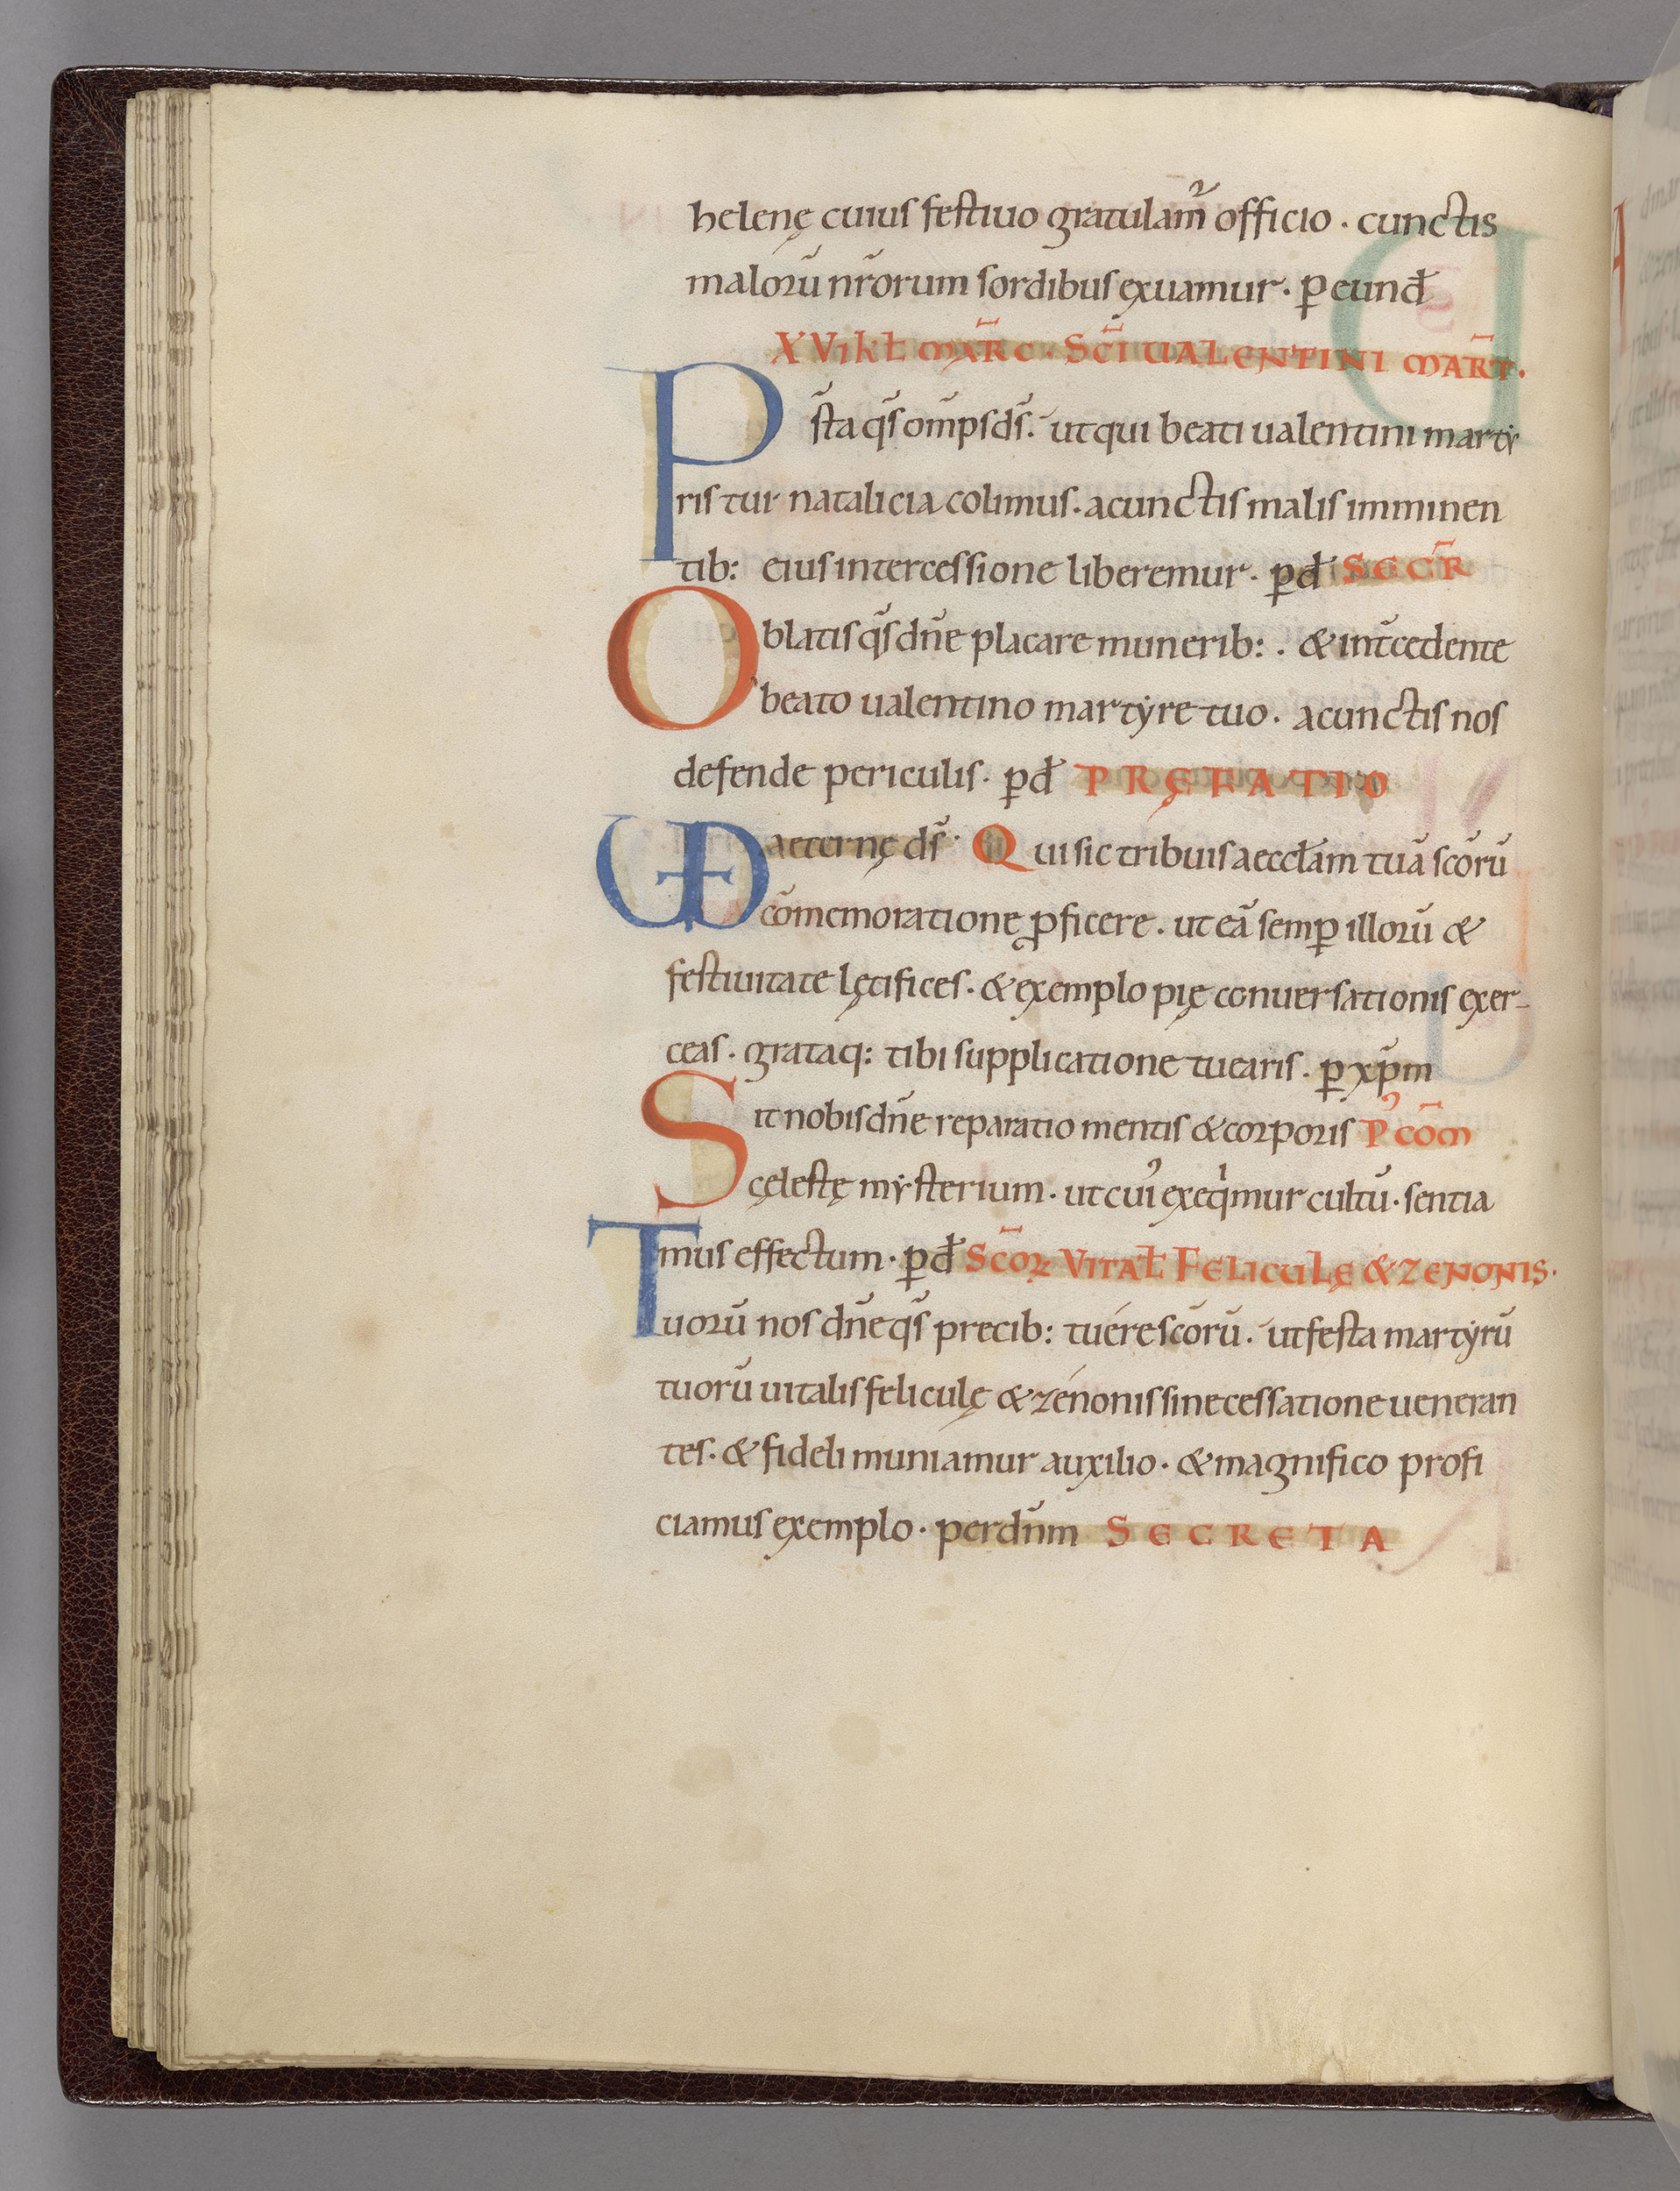 helenę cuius festiuo gratulam̃ officio · cunctis
malorũ nr̃orum sordibus exuamur · ꝑ eund̃
XVI kł mar̃c · Sc̃i UALENTINI mar̃t ·
P st̃a qs̃ om̃ps ds̃ · ut qui beati ualentini marty
ris tui natalicia colimus · a cunctis malis imminen
tib: eius intercessione liberemur · ꝑ d̃ SECR̃
Oblatis qs̃ dñe placare munerib: · & int̃cedente
beato ualentino martẏre tuo · a cunctis nos
defende periculis · ꝑ d̃ PRĘFATIO
UD aeternę ds̃ · Qui sic tribuis aeccłam tuã sc̃orũ
cõmemoratione ꝓficere · ut eã semꝑ illorũ &
festiuitate lętifices · & exemplo pię conuersationis exer-
ceas · grataq: tibi supplicatione tuearis · ꝑ xp̃m
Sit nobis dñe reparatio mentis & corporis P' cõm
cęlestę mẏsterium · ut cui' exeq̇mur cultũ · sentia
mus effectum · ꝑ d̃ Sc̃oꝝ VITAł FELICULĘ & ZENONIS ·
Tuorũ nos dñe qs̃ precib: tuére sc̃orũ · ut festa martẏrũ
tuorũ uitalis feliculę & zénonis sine cessatione ueneran
tes · & fideli muniamur auxilio · & magnifico profi
ciamus exemplo · per dñm SECRETA